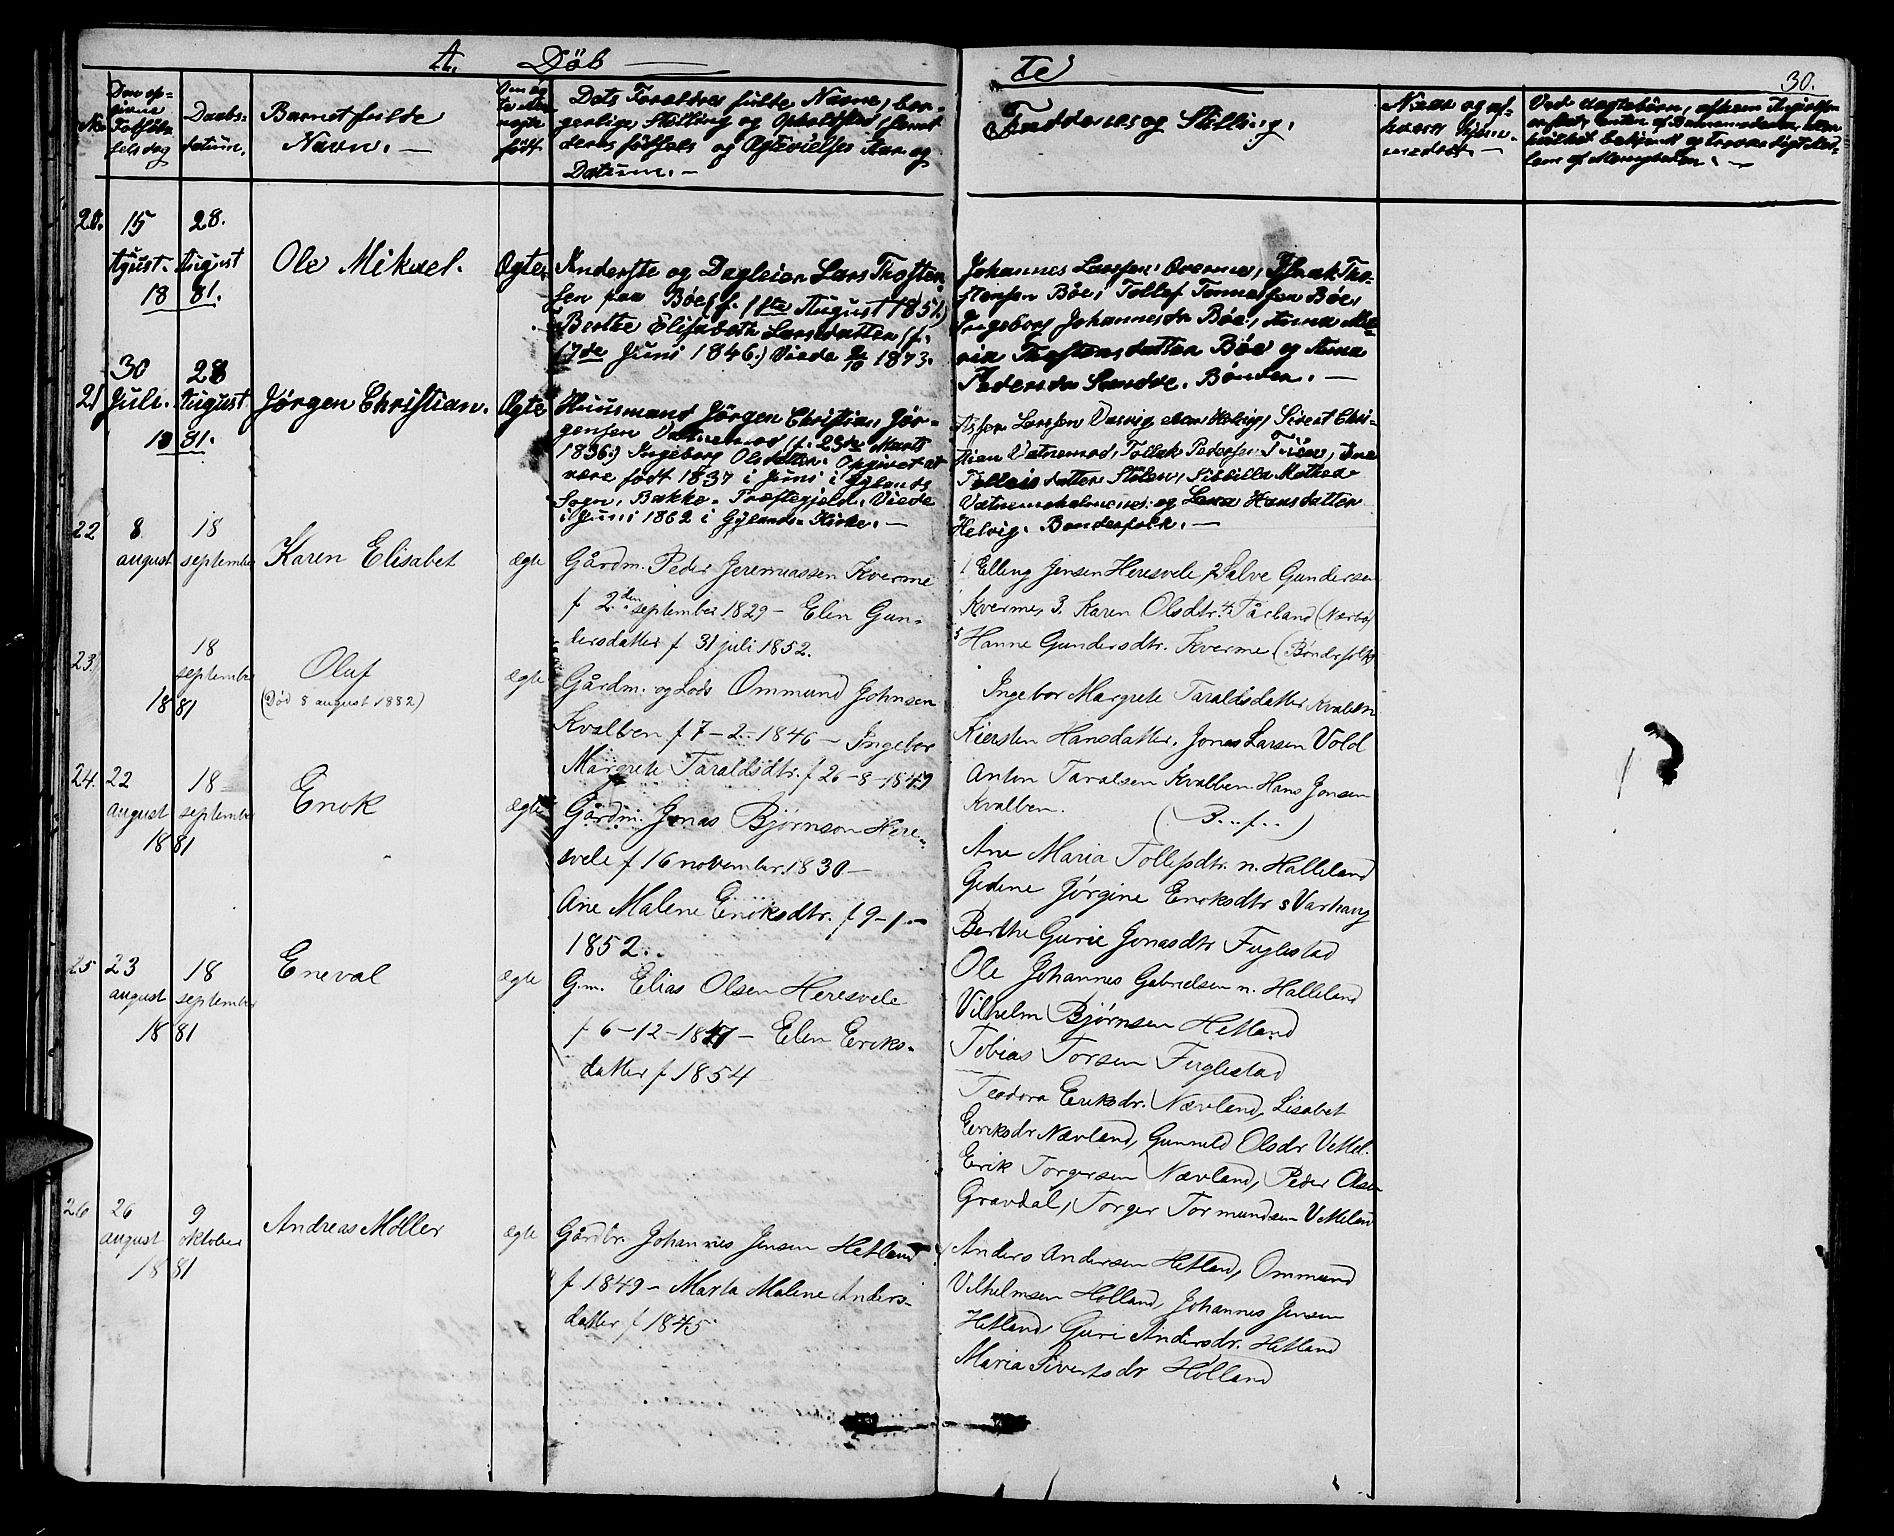 A. Döb te
30.
No.
Daabs-
datum.
Barnet fulde
Navn. —
Dets Forældres fulde Navne, bor-
gerlige Stilling og Opholdsted, samt
deres födsels og Ægtevielses Aar og
Datum. —
Faddernes og Stilling.
20. 15 28.
August. August
18 81.
Ole Mikael.
Ægte
Inderste og Dagleier Lars Thosten-
sen paa Böe (f. 1ste August 1851)
Berthe Elisabeth Larsdatter (f.
17de Juni 1846.) Viede 1873.
Johannes Larssen Qverme, Isak Tho-
stensen Böe, Tollef Tonnassen Böe,
Ingeborg Johannesdtr Böe, Anna Ma-
ria Thostensdatter Böe og Anna
Pedersdtr Sandve. Bönder. —
21 30 28
Juli. August
18 81.
Jørgen Christian.
Ægte
Huusmand Jörgen Christian Jör-
gensen Vatnemod (f. 23de Marts
1836.) Ingeborg Olsdatter. Opgivet at
være födt 1837 i Juni i Gylands
Sogn, Bakke-Præstegjeld. Viede
i Juni 1862 i Gylands-Kirke. —
Asser Larssen Helvig, Sivert Chri-
stian Vatnemod, Tollak Pedersen
Tolleisdatter Stölen, Sibbille Mathea
og Lena Hansdatter
Helvig. Bønderfolk. —
22 8 18
august september
Karen Elisabet
ægte
Gårdm. Peder Jeremiassen Kverme
f 2.den september 1829 — Elen Gun-
dersdatter f 31 juli 1852.
1 Elling Jensen Heresvele, 2 Salve Gundersen
Kverme, 3. Karen Olsdtr. 4. Tårland (Nærbø)
5 Hanne Gundersdtr. Kverme (Bønderfolk)
23. 18
september
18 81
Oluf
(Død 8 august 1882)
ægte
Gårdm. og Lods Ommund Johnsen
Kvalben f 7-2-1846 — Ingebor
Margrete Taraldsdtr. f 26-8-1849
Ingebor Margrete Taraldsdatter Kvalben
Kiersten Hansdatter, Jonas Larsen Vold
Anton Taralsen Kvalben Hans Jonsen
Kvalben. (B..f..)
24. 22 18
august september
18 81
Enok
ægte
Gårdm. Jonas Bjørnson Here-
svele f 16 november 1830 —
Ane Malene Eriksdtr. f 9-1-
1852.
Ane Maria Tollefsdtr. n. Halleland
Gedine Jørgine Eriksdtr s Varhaug
Berthe Gurie Jonasdtr Fuglestad
Ole Johannes Gabrielsen n. Halleland
Vilhelm Bjørnsen Hetland
Tobias Torsen Fuglestad
25 23 18
august september
18 81
Eneval
ægte
G.m. Elias Olsen Heresvele
f 6-12-1847 — Elen Eriks-
datter f 1854
Teodora Eriksdr. Nævland, Lisabet
Eriksdr Nævland, Gunnild Olsdr Vettel.
Erik Torgersen Nævland, Peder Olsen
Gravdal, Torger Tormundsen Vetteland
26 26 9
august oktober
18 81
Andreas Møller
ægte
Gårdbr. Johannes Jensen Hetland
f 1849 — Marta Malene Anders-
datter f 1845
Anders Andersen Hetland, Ommund
Vilhelmsen Hølland, Johannes Jensen
Hetland, Guri Andersdr. Hetland
Maria Sivertsdr Hølland